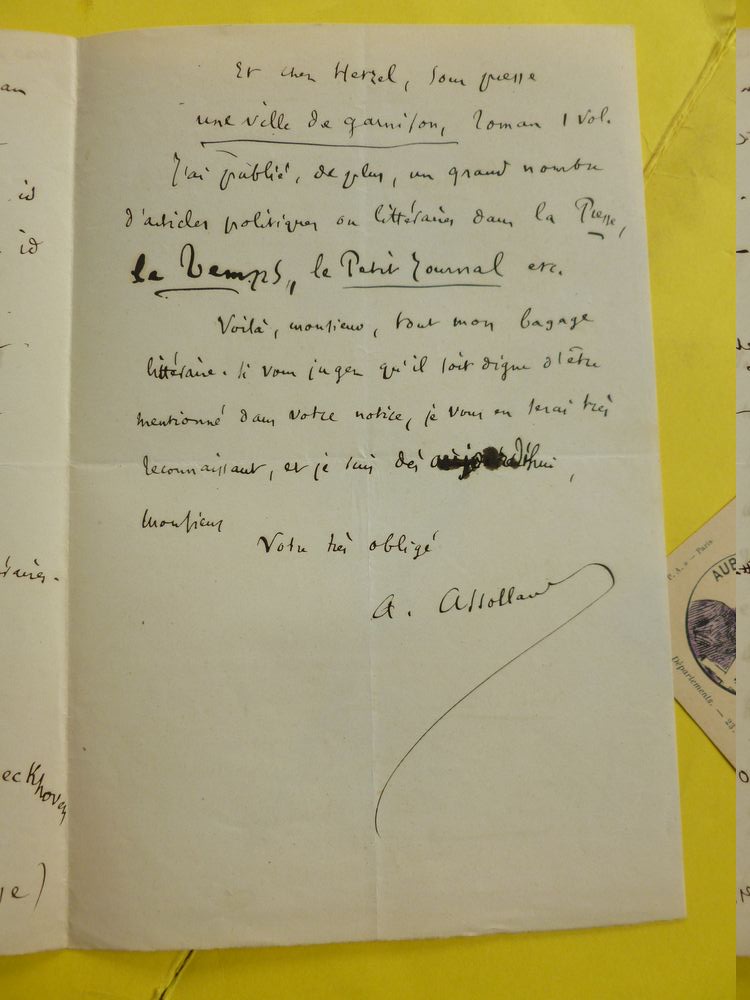 Et chez Hetzel, sous presse
une ville de garnison, roman 1 vol.
J'ai publié, de plus, un grand nombre
d'articles politiques ou littéraires dans la Presse,
le Temps, le Petit Journal etc.
Voilà, monsieur, tout mon bagage
littéraire. Si vous jugez qu'il soit digne d'être
mentionné dans votre notice, je vous en serai très
reconnaissant, et je suis dès aujourd'hui,
Monsieur
Votre très obligé
A. Assollant
an
id
id
éraires.
eckhoven
ge)
P. A. » — Paris
AUP
Départements. — 25.